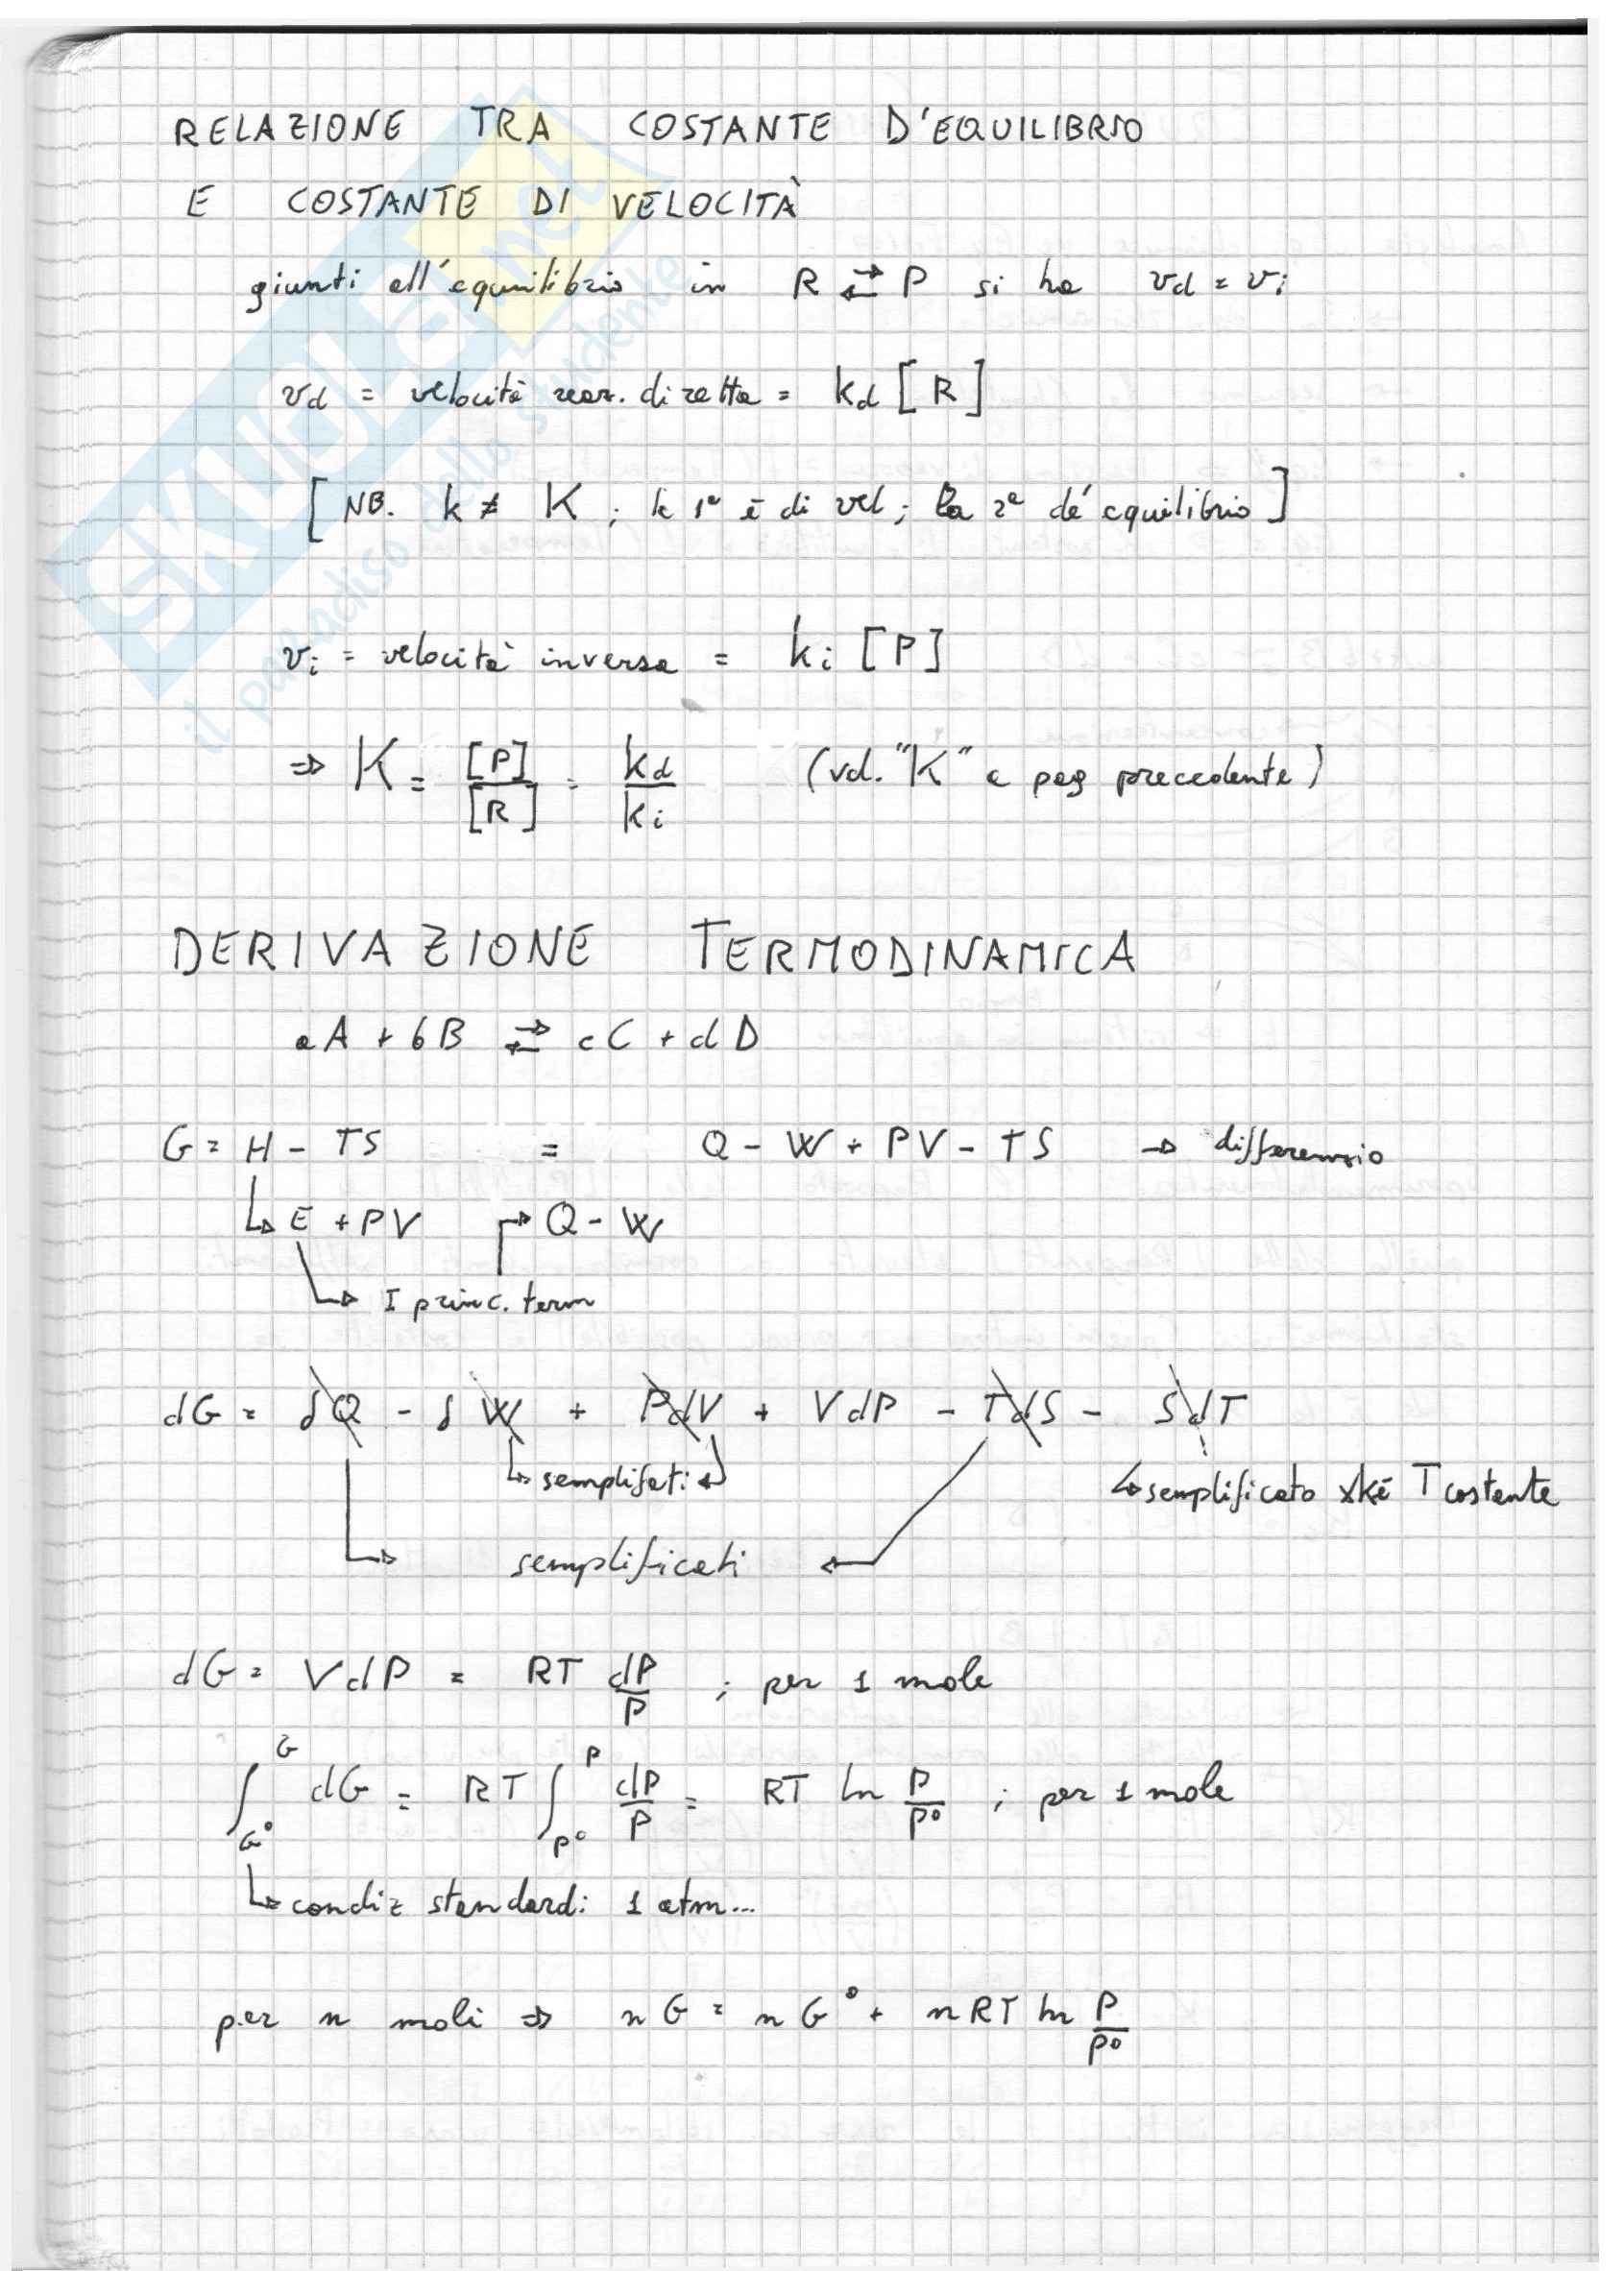 RELAZIONE TRA COSTANTE D'EQUILIBRIO
E COSTANTE DI VELOCITÀ
giunti all'equilibrio in R ⇄ P si ha vd = vi
vd = velocità reaz. diretta = kd [R]
[NB. k ≠ K ; la 1ª è di vel ; la 2ª dé equilibrio]
vi = velocità inversa = ki [P]
⇒ K = [P]/[R] = kd/ki (vd. "K" a pag precedente)
DERIVAZIONE TERMODINAMICA
aA + bB ⇄ cC + dD
G = H - TS = Q - W + PV - TS → differenzio
↳ E + PV ↱ Q - W
↳ I princ. term
dG = δQ - δW + PdV + VdP - TdS - SdT
↳ semplifati ↲ ↳ semplificato xké T costante
↳ semplificati ↲
dG = VdP = RT dP/P ; per 1 mole
∫_{G°}^{G} dG = RT ∫_{P°}^{P} dP/P = RT ln P/P° ; per 1 mole
↳ condiz standard: 1 atm...
per n moli ⇒ nG = nG° + nRT ln P/P°
SKUOLA.net
il paradiso dello studente